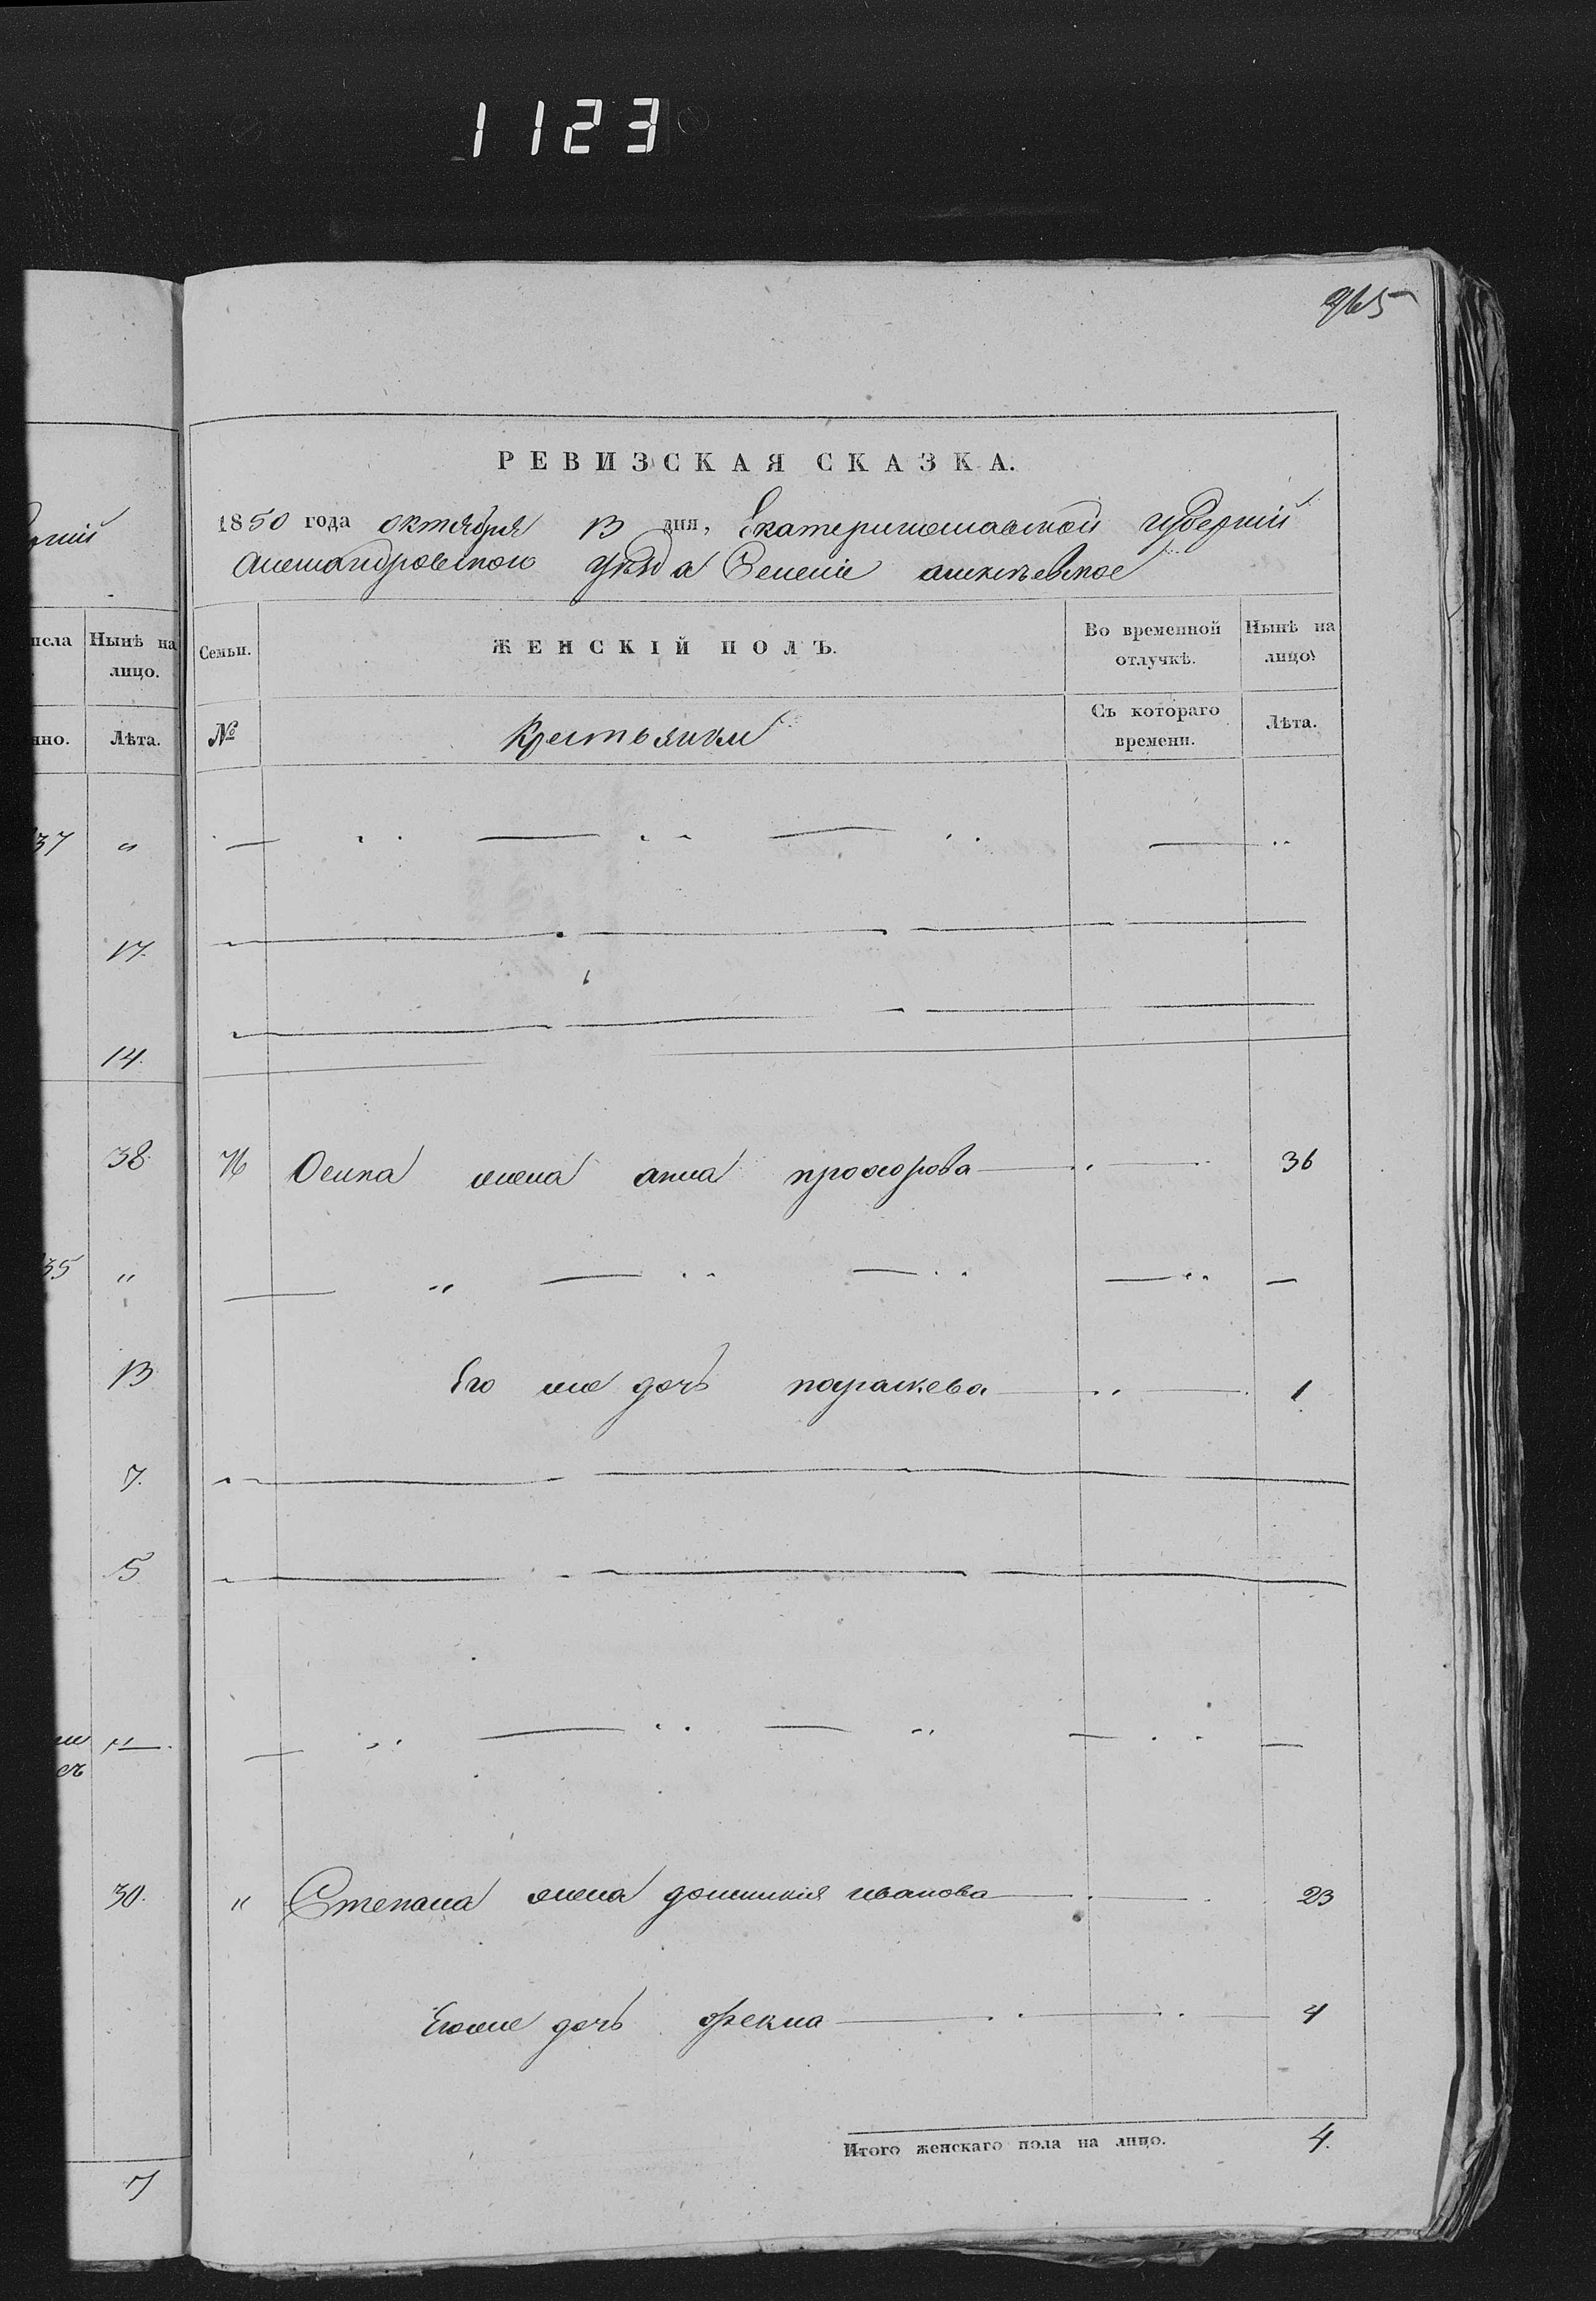 1123
965
РЕВИЗСКАЯ СКАЗКА.
1850 года октября 13 дня, Екатеринославской губернiи
Александровского уѣзда Селенiе алексѣевское
исла
Нынѣ на лицо.
Семьи.
ЖЕНСКIЙ ПОЛЪ.
Во временной отлучкѣ.
Нынѣ на лицо.
нно.
Лѣта.
№
Крестьянки
Съ котораго времени.
Лѣта.
37 "
17.
14.
38. 76 Осипа жена анна прохорова 36
35 "
13 Его же дочь параскева 1
7.
5
30. " Степана жена домникiя иванова 23
Егоже дочь фекла 4
Итого женскаго пола на лицо. 4.
7